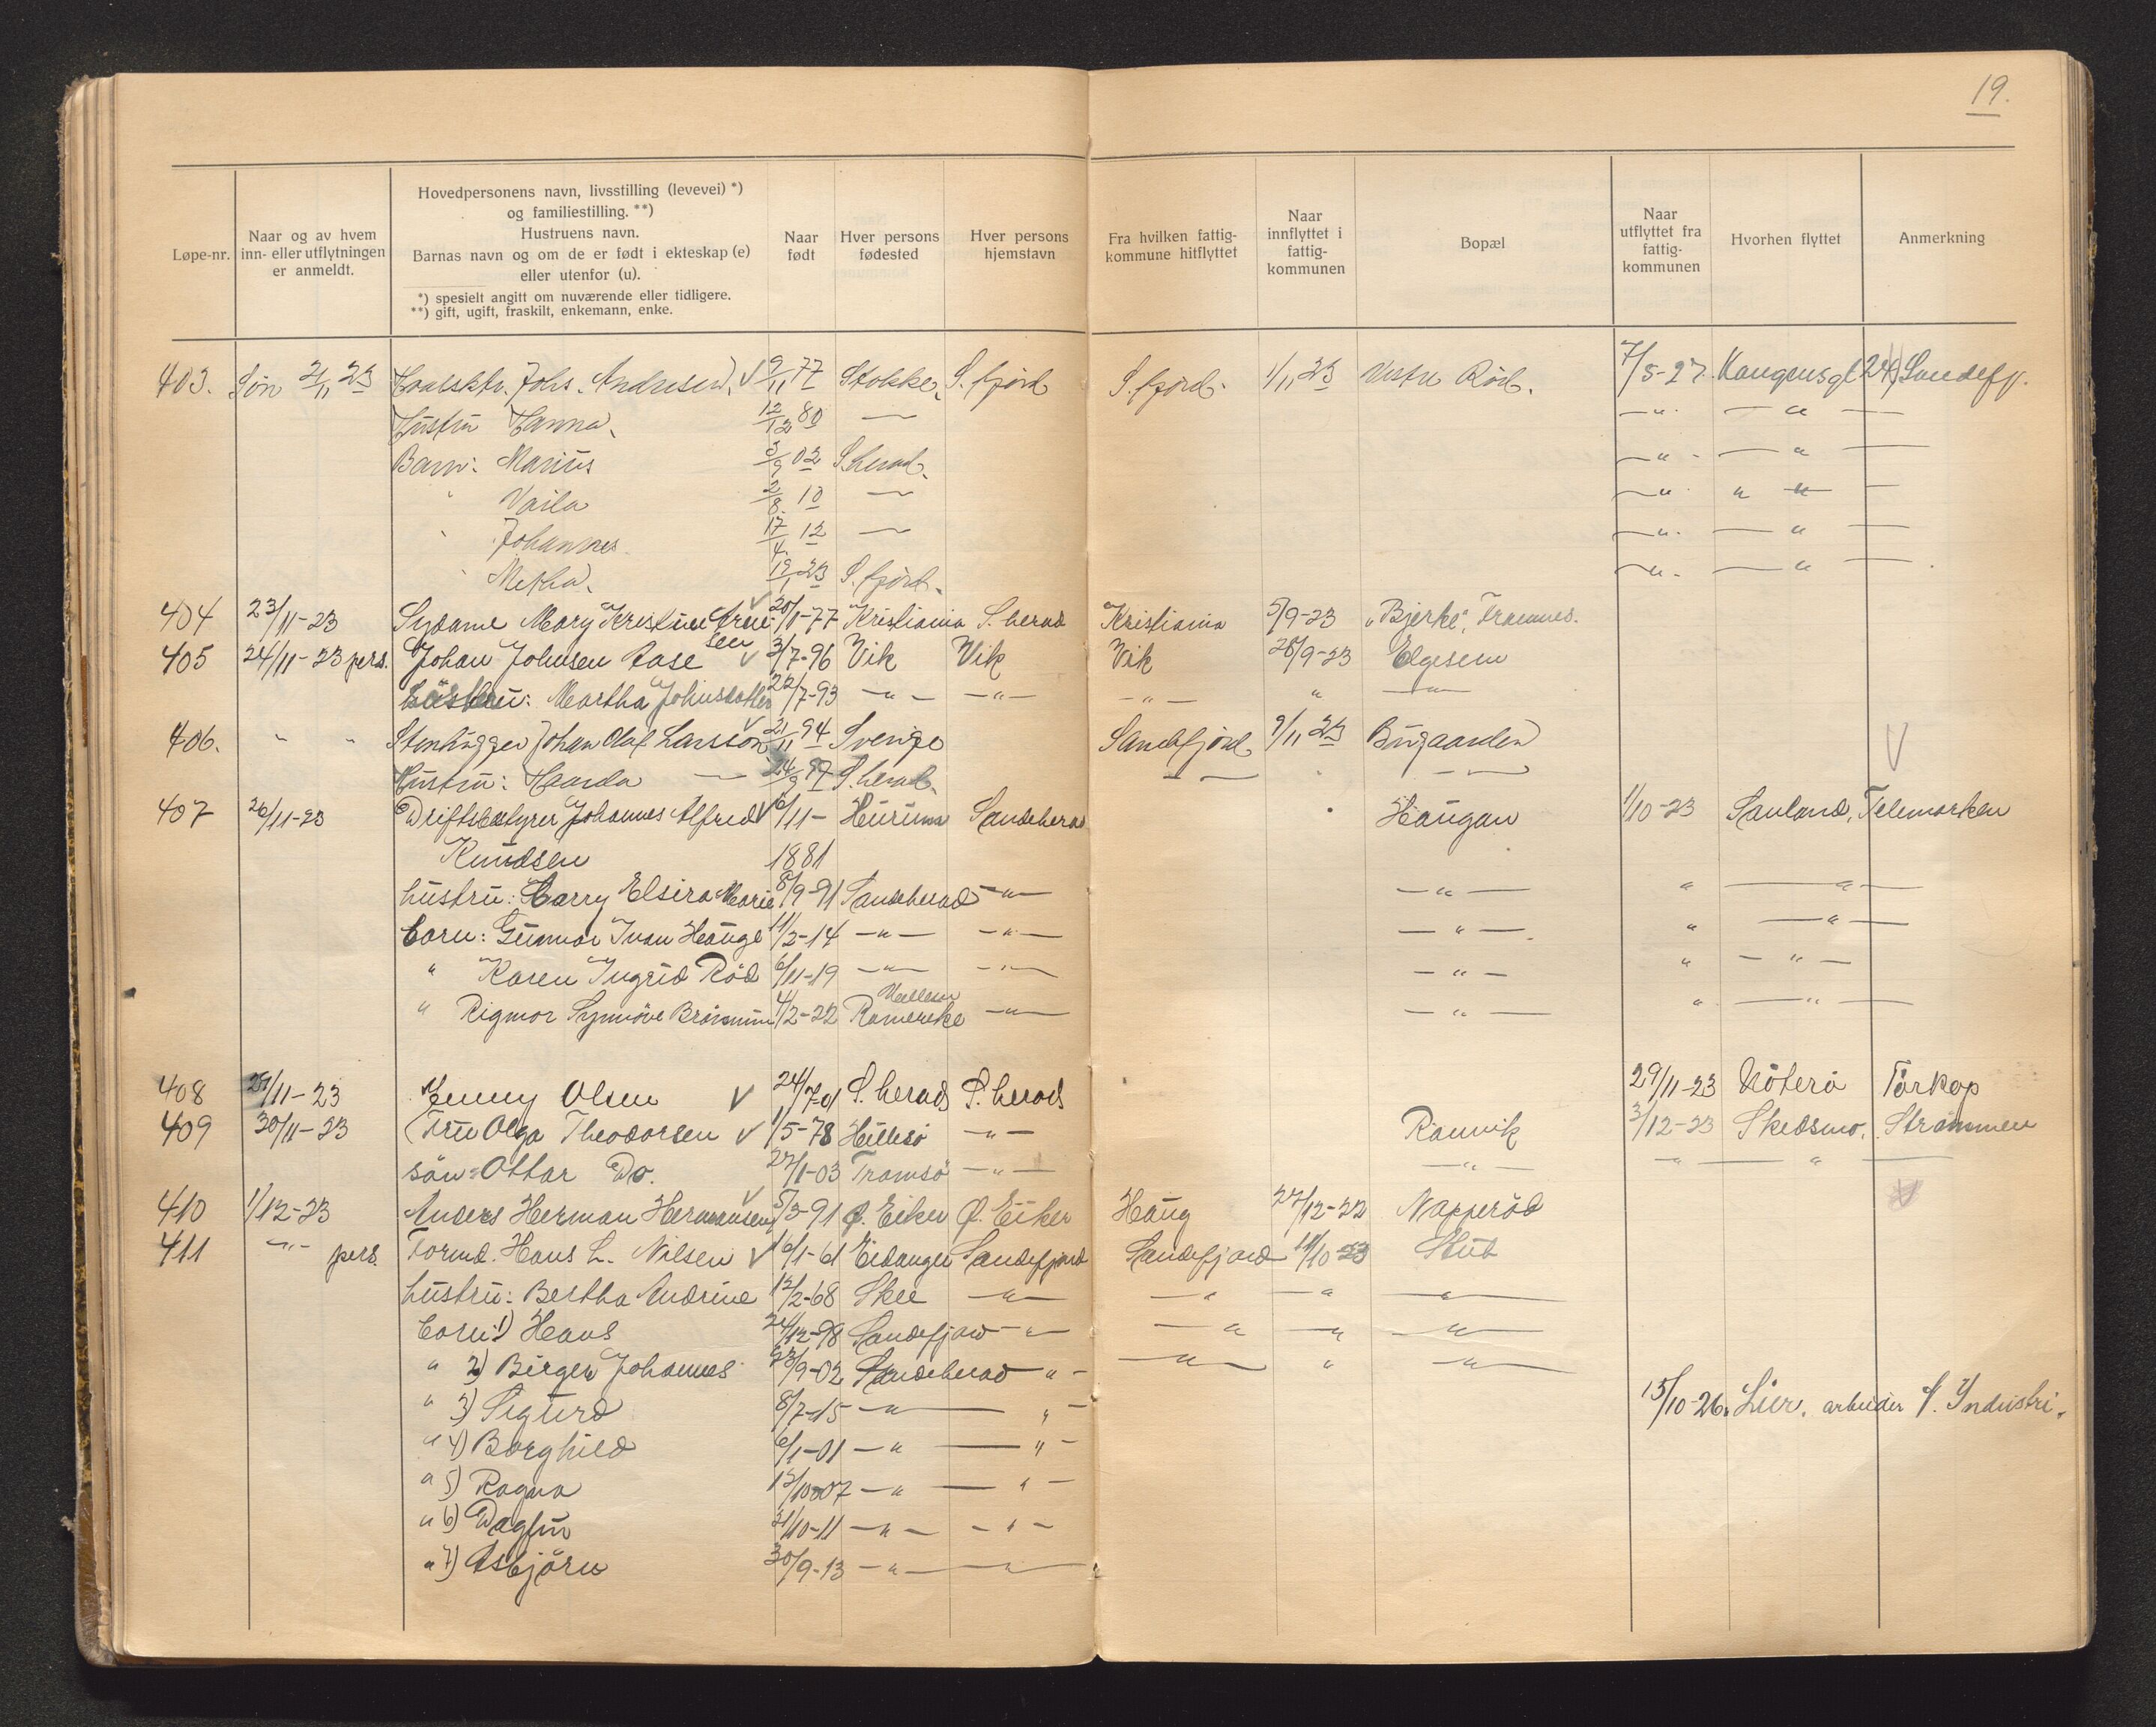 19.
Løpe-nr.
Naar og av hvem
inn- eller utflytningen
er anmeldt.
Hovedpersonens navn, livsstilling (levevei) *)
og familiestilling. **)
Hustruens navn.
Barnas navn og om de er født i ekteskap (e)
eller utenfor (u).
*) spesielt angitt om nuværende eller tidligere.
**) gift, ugift, fraskilt, enkemann, enke.
Naar
født
Hver persons
fødested
Hver persons
hjemstavn
Fra hvilken fattig-
kommune hitflyttet
Naar
innflyttet i
fattig-
kommunen
Bopæl
Naar
utflyttet fra
fattig-
kommunen
Hvorhen flyttet
Anmerkning
403. 2/11 23 Johs. Andresen. √ 9/11 77 Stokke. S. fjord S. fjord. 1/11 23 Vestre Röd. 7/5-27. Kongensgt 24, Sandefj.
Hustru Hanna. 12/12 80 — -"- — " —
Barn: Marius 3/9 02 S.herad. -"- — " —
" Vaila 2/8. 10 — -"- " " —
" Johannes 17/4. 12 — -"- — " —
" Metha. 19/1 23 S. fjord. -"- — " —
404 23/11-23 Sydame Mary Kristine 20/1-77 Kristiania S. herad Kristiania 5/9-23 "Bjerke", Framnes.
405 24/11-23 pers. Johan Johnsen Aase √ 3/7-96 Vik Vik Vik 28/9-23 Elgesem
hustru: Martha 22/7-93 -"- -"- -"- " -"-
406. " " Stenhugger Johan Olaf Larsson √ 21/11 94 Sverige Sandefjord 9/11 23 Bugaarden √
Hustru: — 24/9 97 S. herad. — " —
407 26/11-23 Driftsbestyrer Johannes Alfred √ 6/11- Hurum Sandeherad " Haugan 1/10-23 Sauland, Telemarken
Knudsen 1881
hustru: Elvira Marie 8/9-91 Sandeherad -"- -"- " — " —
barn: Gunnar Ivan Hauge 11/2-14 -"- -"- -"- " — " —
" Karen Ingrid Röd 6/11-19 -"- -"- -"- " — " —
" Rigmor Synnöve 4/2-22 -"- -"- " — " —
408 29/11-23 Jenny Olsen √ 24/7-01 S. herad S. herad 29/11-23 Nöterö Torkop
409 30/11-23 Fru Olga Theodorsen √ 1/5-78 Hillesö -"- Ranvik 3/12-23 Skedsmo. Strömmen
sön: Ottar Do. 27/1-03 Tromsö -"- -"- -"- " —
410 1/12-23 Anders Herman Hermansen √ 5/3-91 Ø. Eiker Ø. Eiker Haug 27/12-22 Napperöd
411 -"- pers. Formd. Hans L. Nilsen √ 16/1-61 Eidanger Sandefjord Sandefjord 14/10-23 Stub
hustru: Bertha Andrine 12/2-68 Skee -"- -"- -"- -"-
barn: 1) Hans 24/12-98 Sandefjord -"- -"- -"- -"-
" 2) Birger Johannes 23/9-02 Sandeherad -"- -"- " -"-
" 3) Sigurd 8/7-15 -"- -"- 15/10-26. Lier, arbeider i Industri.
" 4) Borghild 6/1-01 -"- -"-
" 5) Ragna 12/10-07 -"- -"-
" 6) Dagfin 31/10-11 -"- -"-
" 7) Asbjörn 30/9-13 -"- -"-